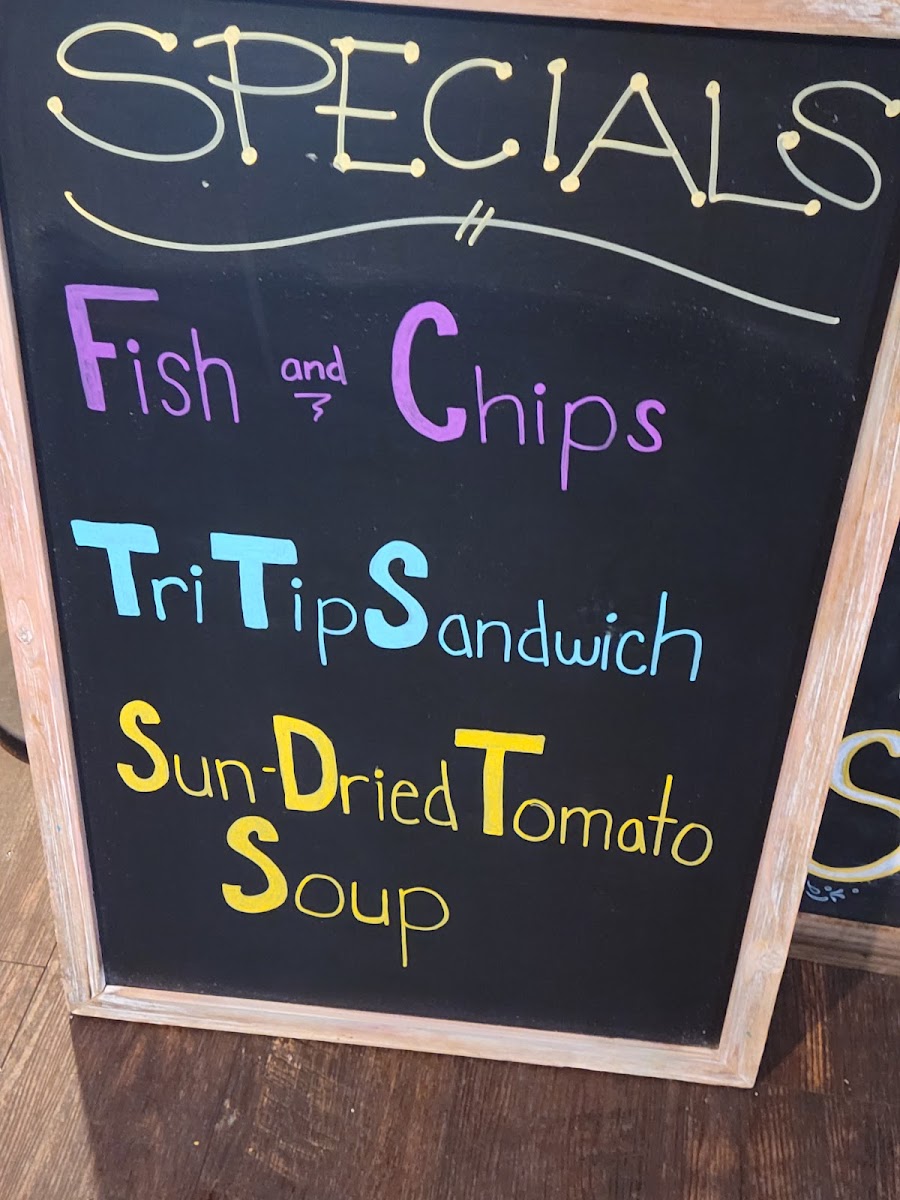 SPECIALS
Fish and Chips
Tri Tip Sandwich
Sun-Dried Tomato
Soup
S